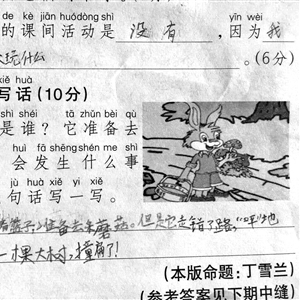 de kè jiān huó dòng shì yīn wèi
的课间活动是 没有 ,因为我
玩什么 。(6分)
xiě huà
写话(10分)
shì shéi tā zhǔn bèi qù
是谁?它准备去
huì fā shēng shén me shì
会发生什么事
jù huà xiě yi xiě
句话写一写。
准备去采蘑菇。但是它走错了路,“咩”地
一棵大树,撞
(本版命题:丁雪兰)
(参考答案见下期中缝)